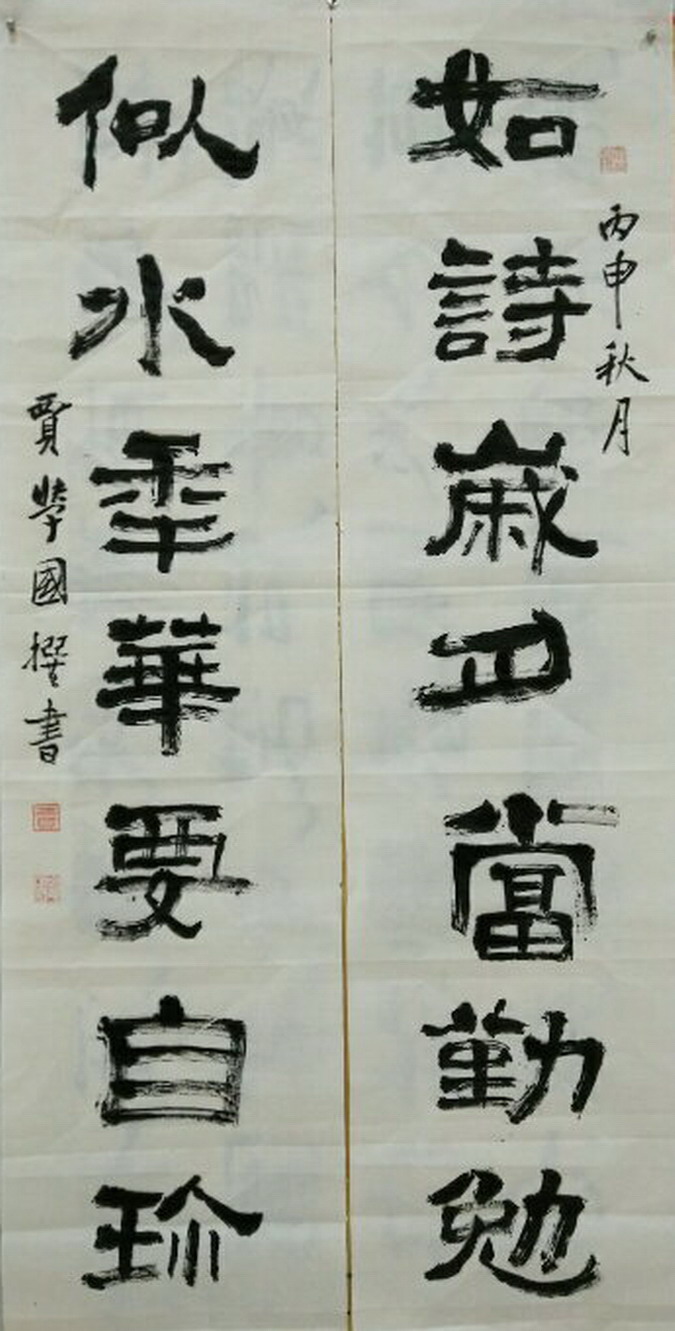 丙申秋月
如詩歲月當勤勉
似水年華要自珍
賈國撰書